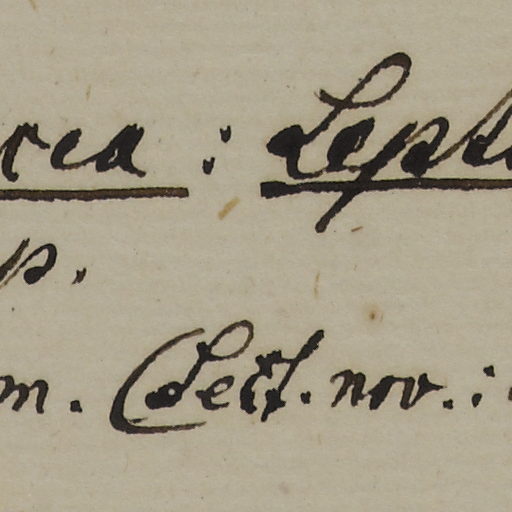 rea : Lept
p.
m. (Sect. nov. :